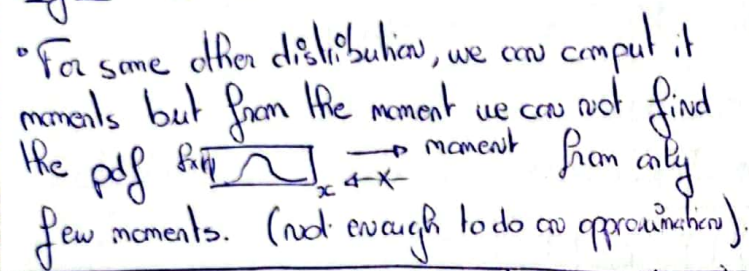 ° For some other distribution, we can comput it
moments but from the moment we can not find
the pdf fx(x) x → moment from only
few moments. (not enough to do an approximation).